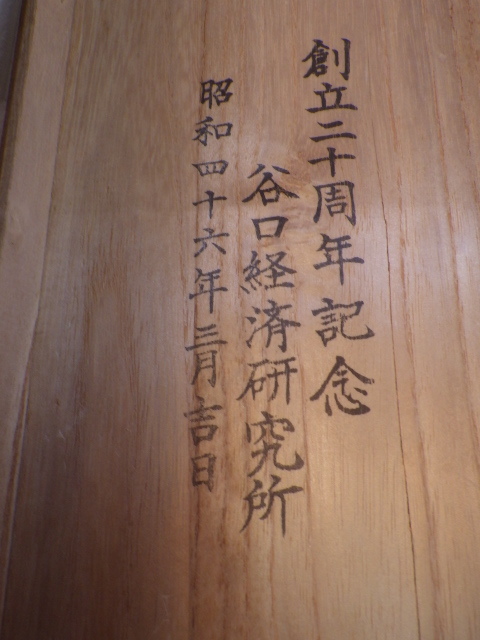 創立二十周年記念
谷口経済研究所
昭和四十六年三月吉日